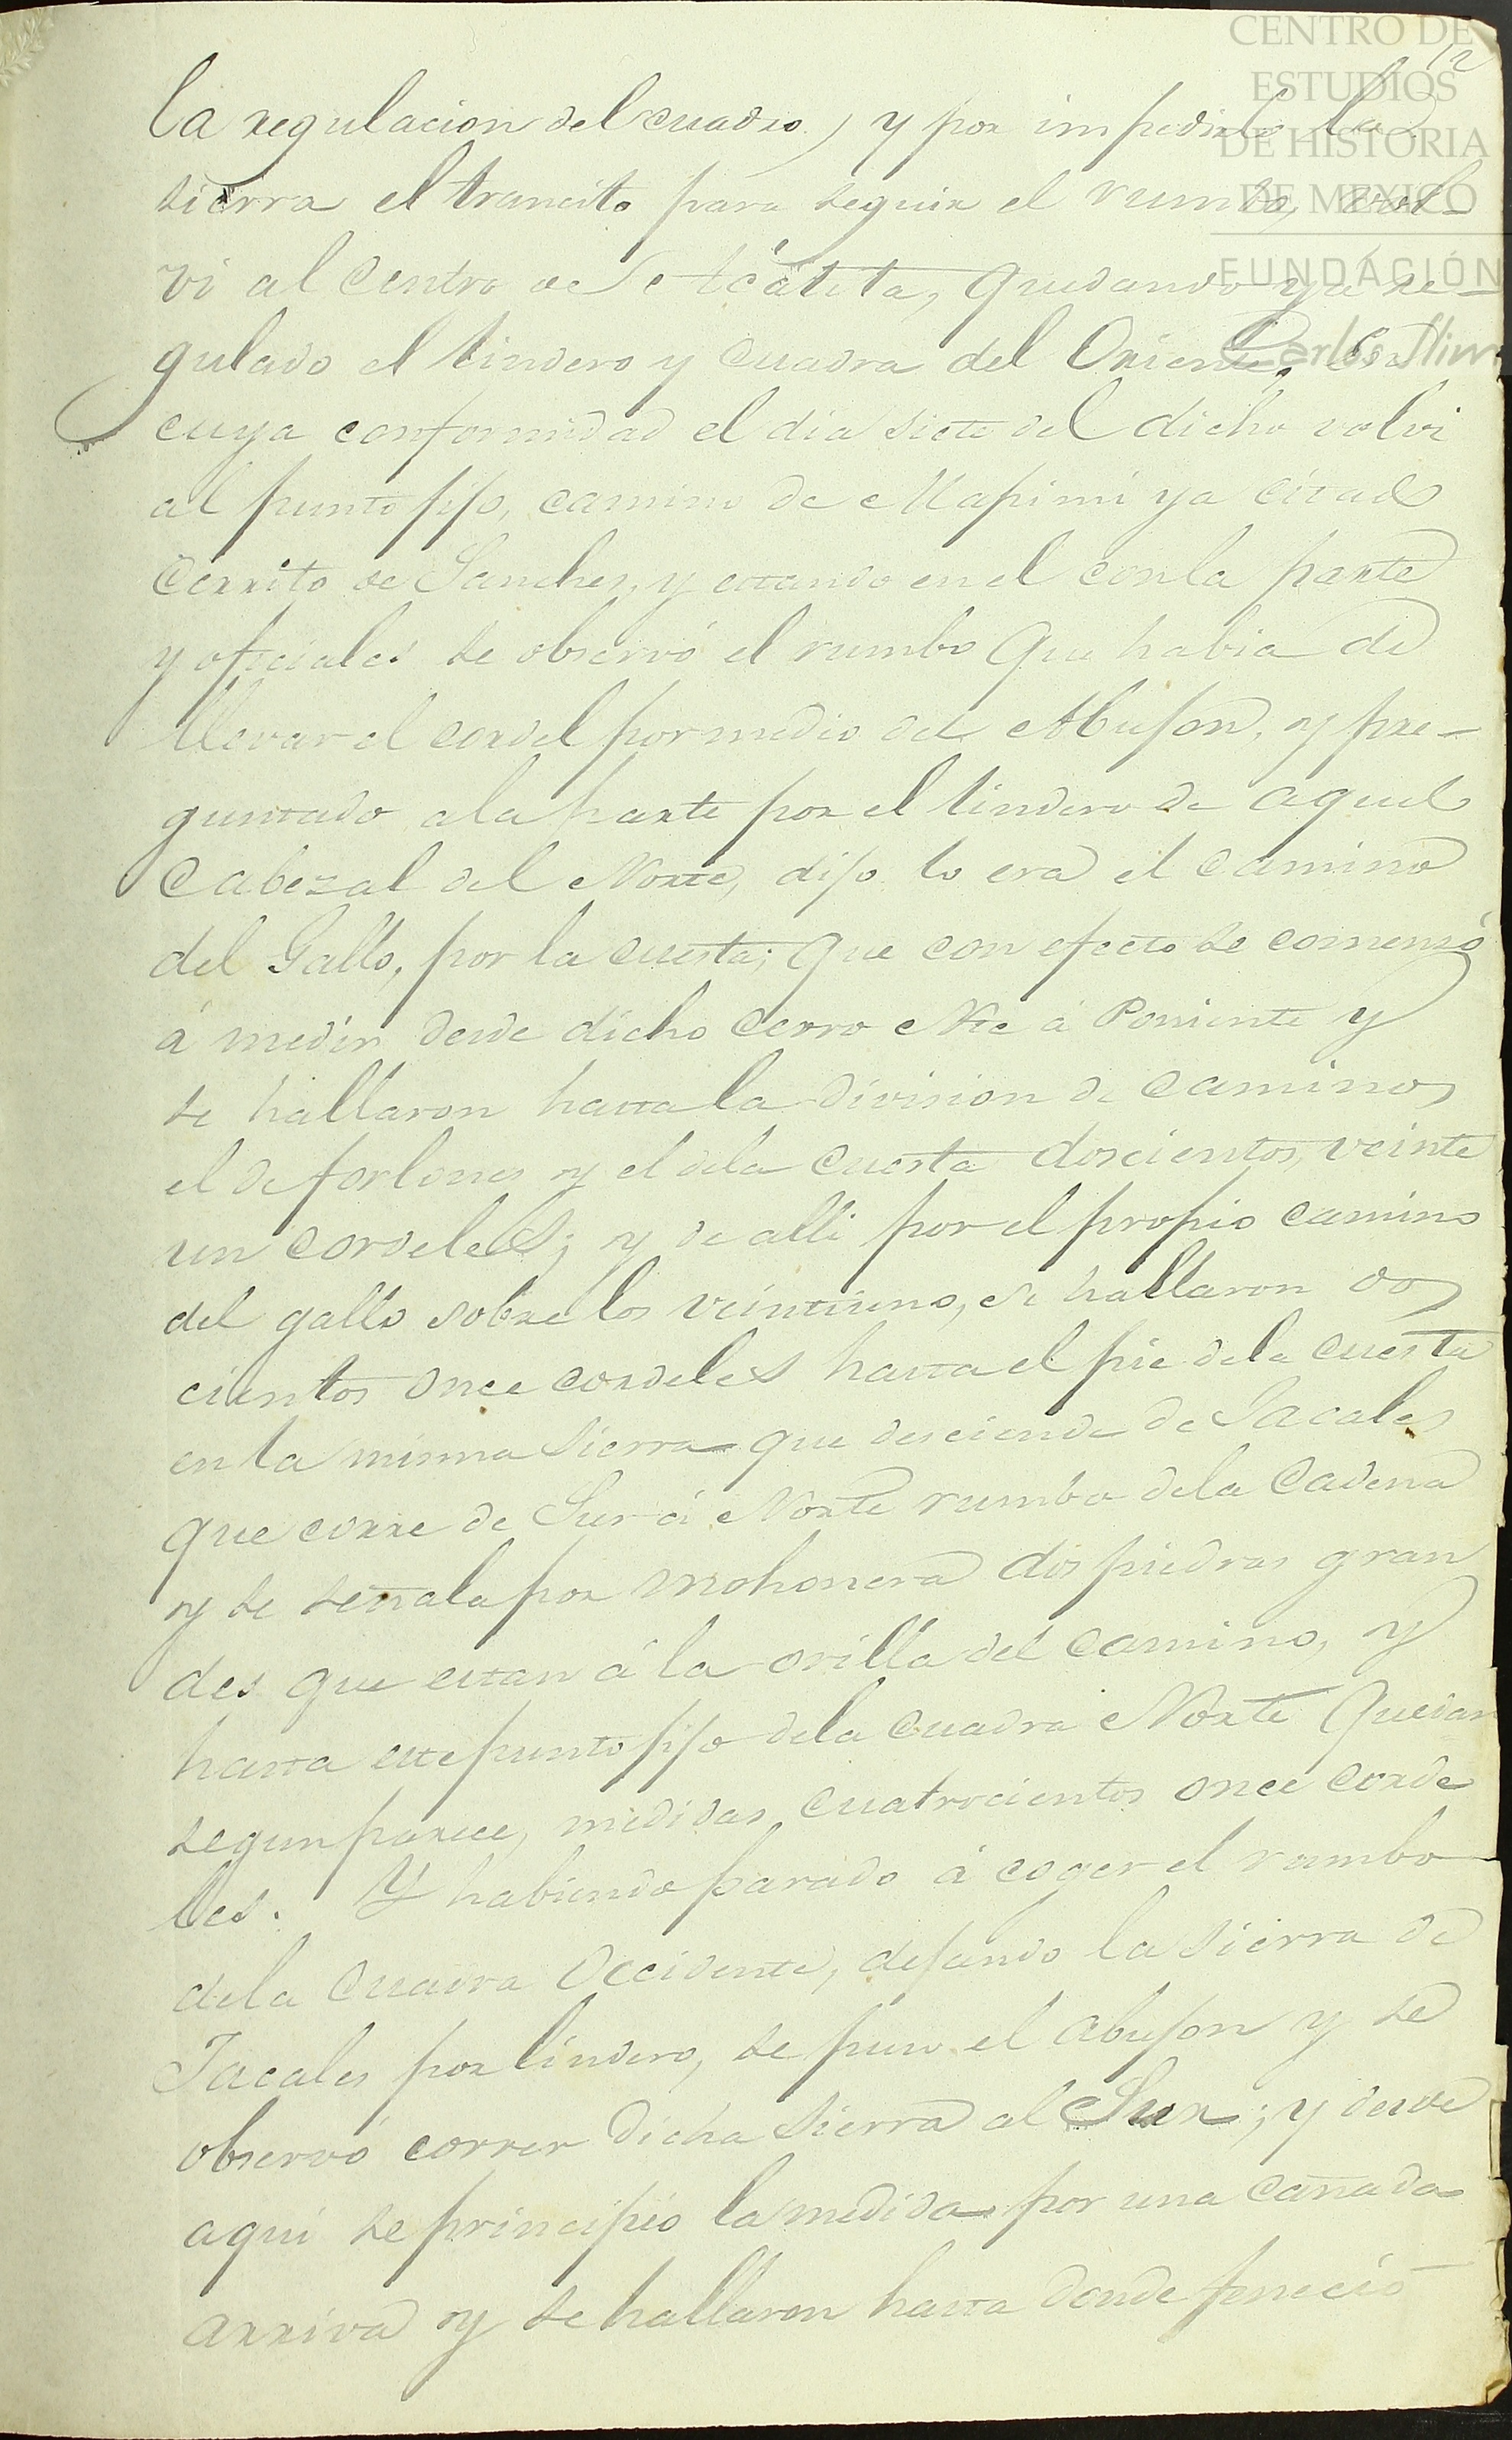 12
la regulacion del cuadro, y por impedirle la
sierra el trancito para seguir el rumbo, vol-
vi al centro de Acátita, quedando ya re-
gulado el lindero y cuadra del Oriente, en
cuya conformidad el dia siete del dicho volvi
al punto fijo, camino de Mapimi ya citado
Cerrito de Sanches, y estando en el con la parte
y oficiales se observó el rumbo que habia de
llevar el cordel por medio del Abujon, y pre-
guntado a la parte por el lindero de aquel
cabezal del Norte, dijo lo era el camino
del Gallo, por la cuesta; que con efecto se comenzó
á medir desde dicho cerro Nte á Poniente y
se hallaron hasta la division de caminos
el de forlones y el dela cuesta doscientos veinte
un cordeles; y de alli por el propio camino
del gallo sobre los veintiuno, se hallaron dos
cientos once cordeles hasta el pie dela cuesta
en la misma sierra que desciende de Jacales
que corre de Sur á Norte rumbo dela Cadena
y se señala por mohonera dos piedras gran
des que estan á la orilla del camino, y
hasta este punto fijo dela cuadra Norte quedan
segun parece, medidas cuatrocientos once corde
les. Y habiendo parado á coger el rumbo
dela Cuadra Occidente, dejando la sierra de
Jacales por lindero, se puso el abujon y se
observó correr dicha sierra al Sur; y desde
aqui se principió la medida por una cañada
arriva y se hallaron hasta donde feneció
CENTRO DE
ESTUDIOS
DE HISTORIA
DE MEXICO
FUNDACIÓN
Carlos Slim